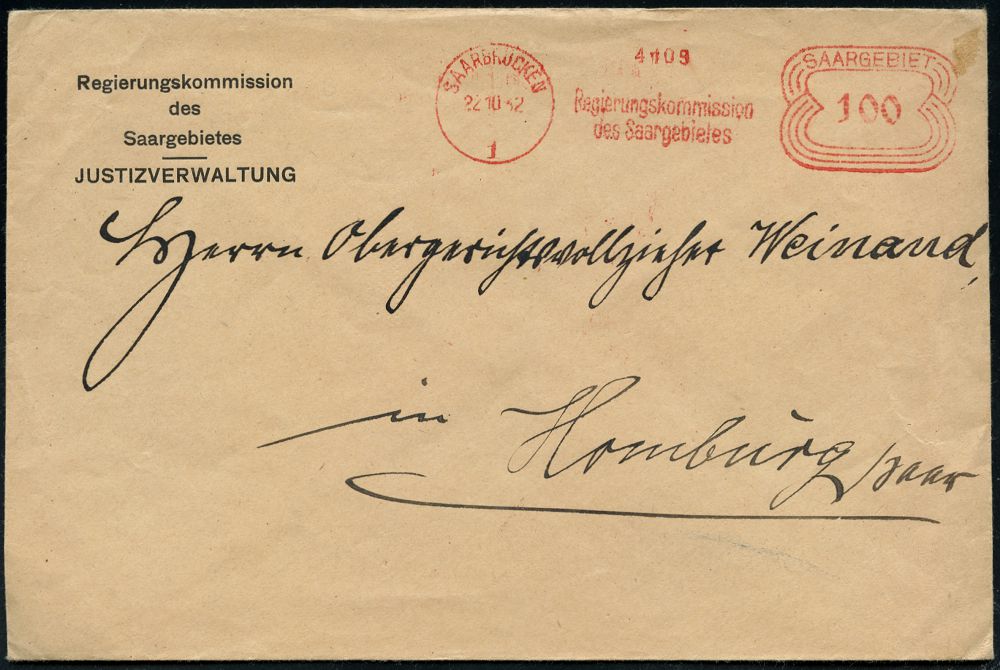 Regierungskommission
des
Saargebietes
JUSTIZVERWALTUNG
SAARBRÜCKEN
22.10.32
1
4109
Regierungskommission
des Saargebietes
SAARGEBIET
100
Herrn Obergerichtsvollzieher Weinand,
in Homburg Saar